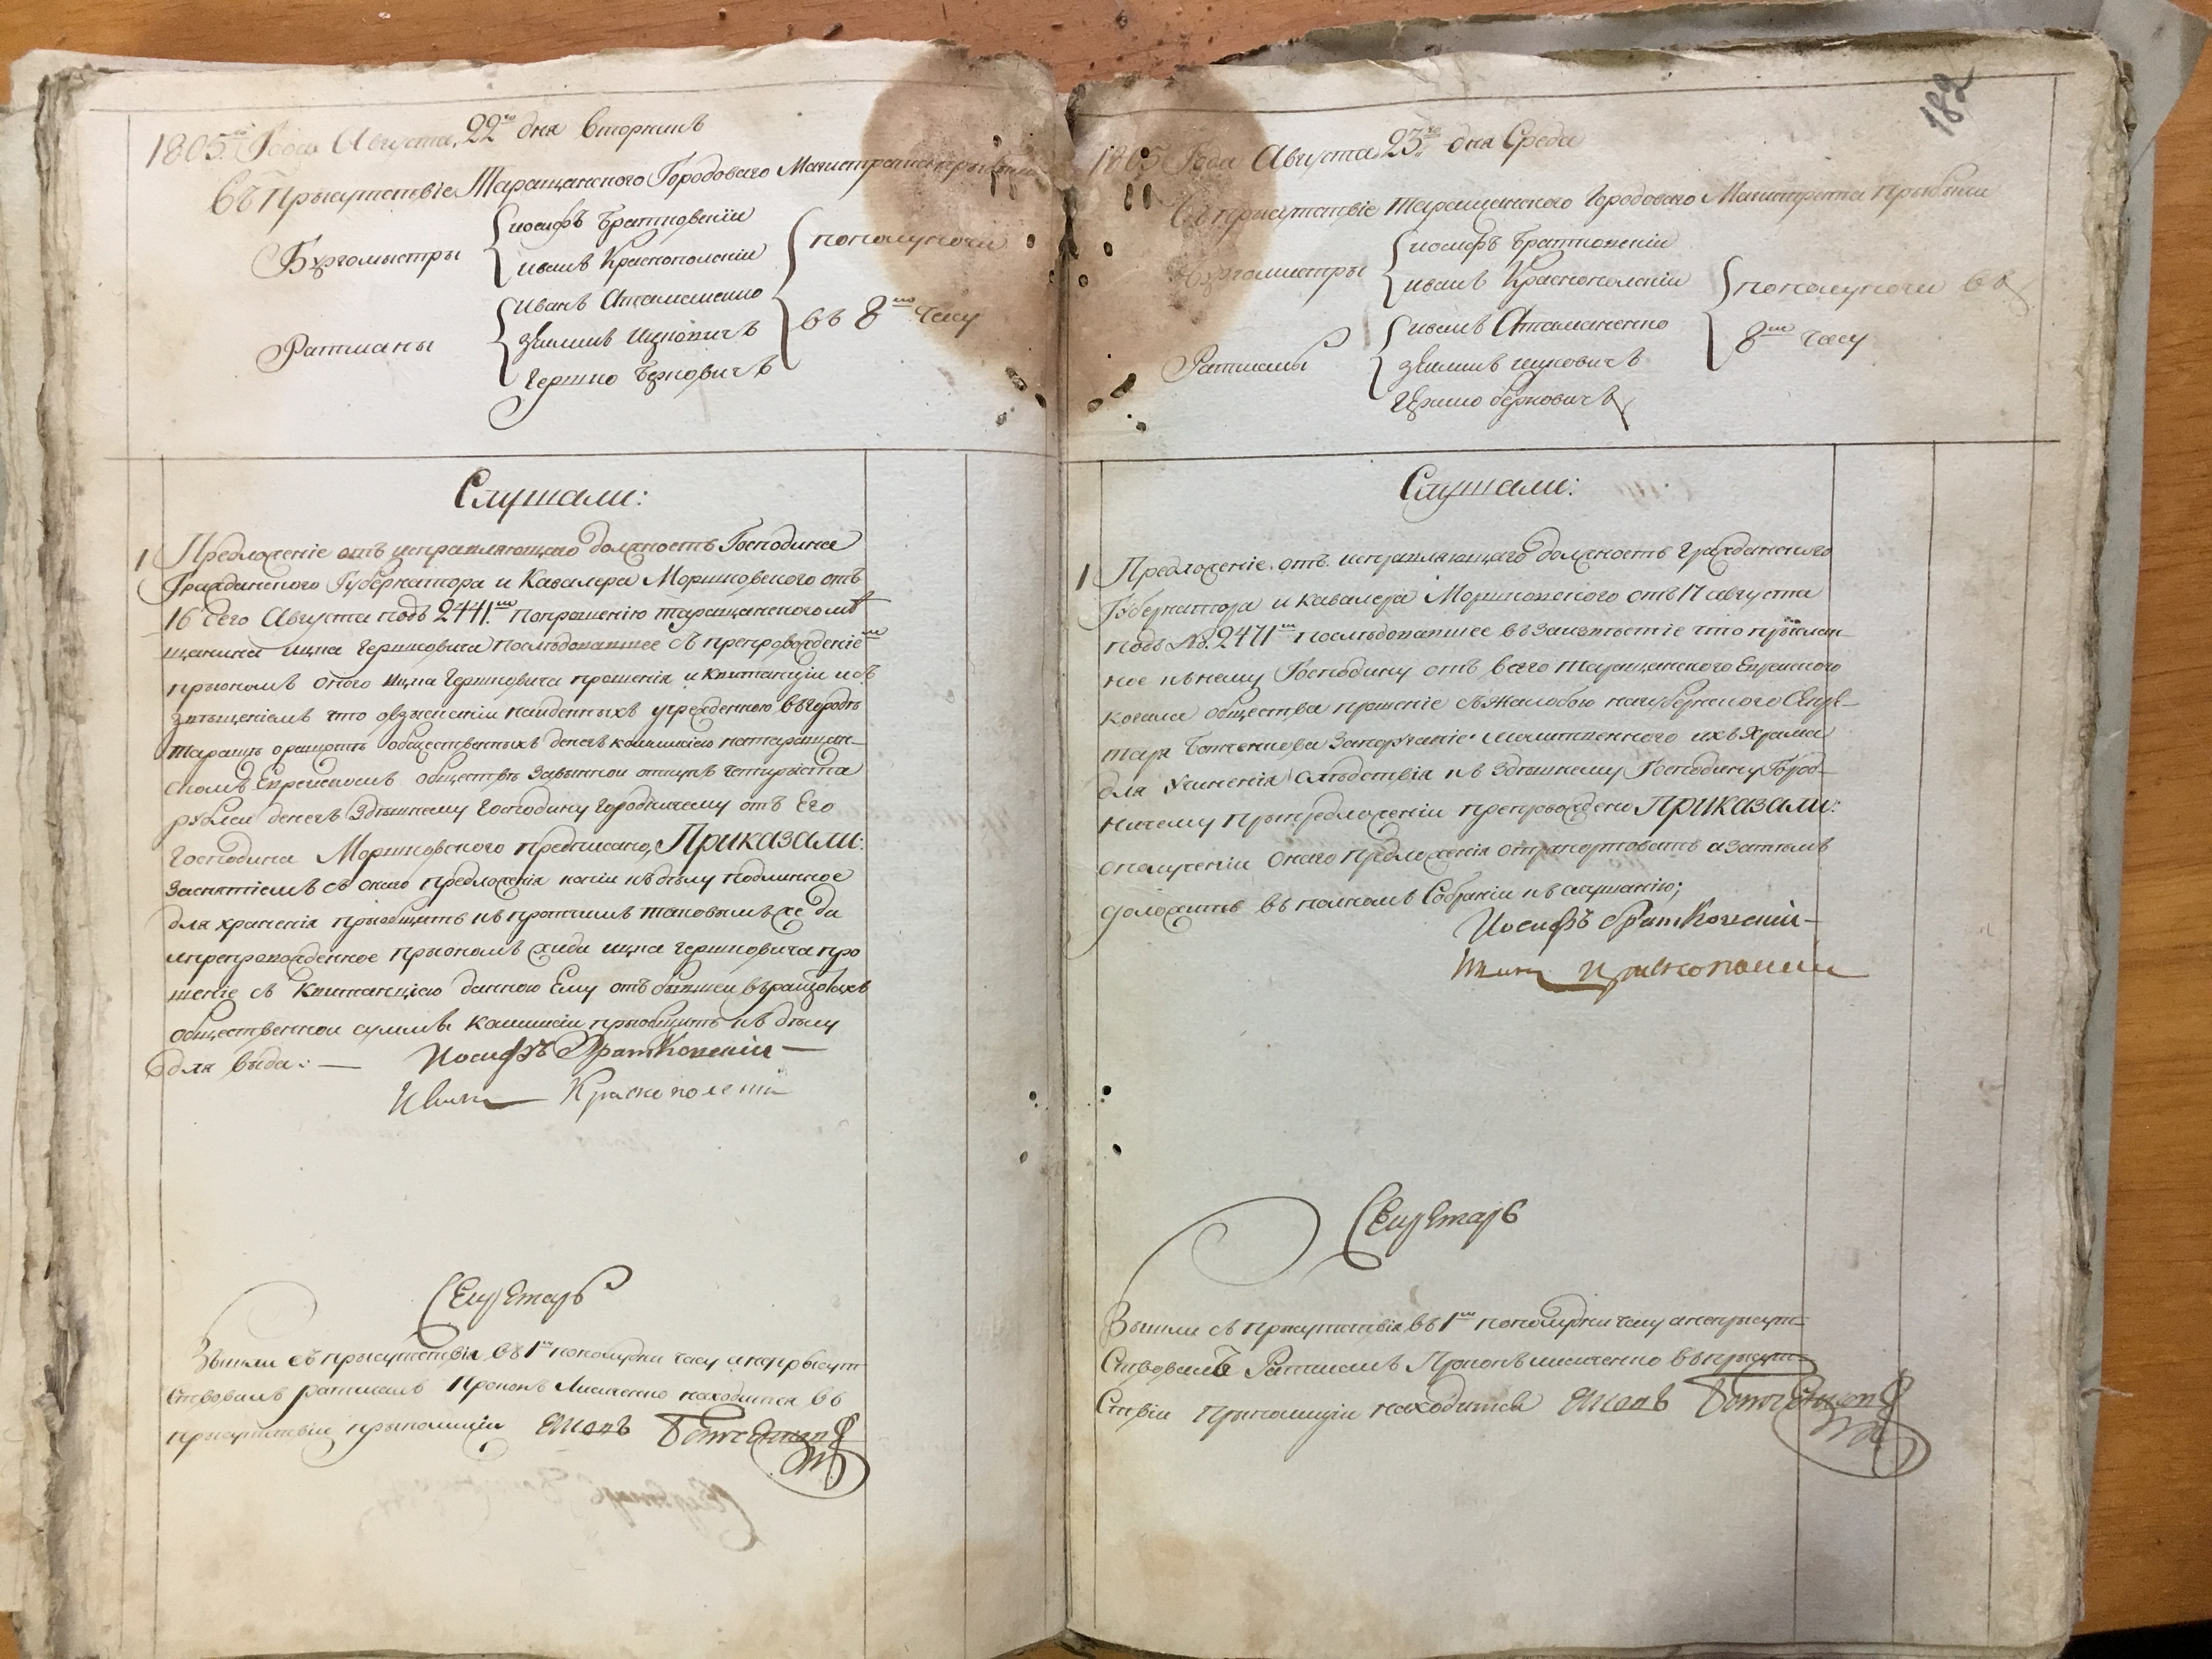 1805.го Года Августа, 22го дня Вторникъ
Въ Присутствіе Таращанского Городоваго Магистрата прибыли
Бургомистры
Иосифъ Братковскіи
Иванъ Краснополскіи
Ратманы
Иванъ Атаманенко
Зелманъ Ицковичъ
Гершко Берковичъ
пополуночи
въ 8мъ часу
Слушали:
1 Предложеніе отъ исправляющаго должность Господина
Гражданского Губернатора и Кавалера Моршковского отъ
16 сего Августа подъ 2441.мъ попрошенію таращанского мѣ
щанина Ицка Гершковича последовавшее съ препровожденіемъ
прыономъ оного Ицка Гершковича прошенія и квитанціи из
что овзысканіи найденныхъ учрежденною въгородѣ
Таращѣ общественныхъ денегъ комисіею натаращан-
скомъ Евреискомъ обществѣ четыриста
рублеи денегъ Здешнему Господину Городничему отъ Его
Господина Моршковского предписано, Приказали:
Заснятіемъ съ оного предложенія копіи къделу подлинное
для храненія прыобщить къ протчимъ таковымъ же да
ипрепровожденное прыономъ жида Ицка Гершковича про
шеніе съ Квитанціею данною Ему отъ бывшеи
общественнои суммы Комисіи прыобщить къ делу
для выда: — Иосифъ Братковскіи —
Иванъ Краснополскіи
Секретарь
Вышли съ прысутствія въ 1мъ пополудни часу анепрысут
ствовалъ ратманъ Прокопъ Лисиченко находится въ
прысутствіи прыполиціи
182
1805 Года Августа, 23го дня Среда
Въ присутствіе Таращанского Городоваго Магистрата Прибыли
Бургомистры
Иосифъ Братковскіи
Иванъ Краснополскіи
Ратманы
Иванъ Атаманенко
Зелманъ Ицковичъ
Гершко Берковичъ
пополуночи въ
8мъ часу
Слушали:
1 Предложеніе отъ исправляющаго должность Гражданского
Губернатора и Кавалера Моршковского отъ 17 августа
подъ №. 2471мъ последовавшее въ что прислан-
ное кнему Господину отъ всего Таращанского Евреиского
кагала общества прошеніе съжалобою нагубернского Секре-
таря молитвенного ихъ храма
для Учиненія Следствія къ Здешнему Господину Город-
ничему Прыпредложеніи препровождено Приказали:
ополученіи оного предложенія отрапортовать азатемъ
доложить въ полномъ Собраніи къ слушанію;
Иосифъ Братковскіи —
Иванъ Краснополскіи
Секретарь
Вышли съ прысутствія въ 1мъ пополудни часу анепрысут-
ствовалъ Ратманъ Прокопъ Лисиченко въ прысут-
ствіи Прыполиціи находится